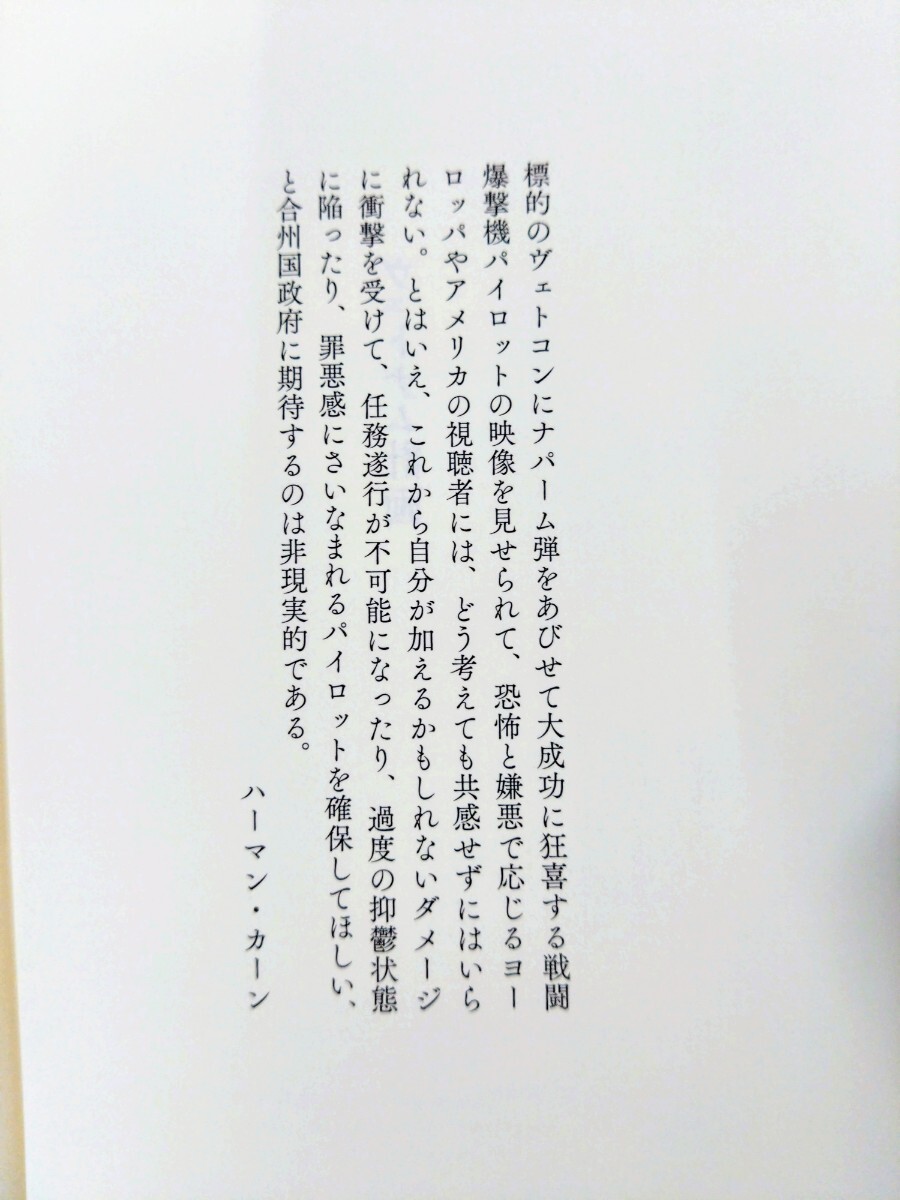 標的のヴェトコンにナパーム弾をあびせて大成功に狂喜する戦闘
爆撃機パイロットの映像を見せられて、恐怖と嫌悪で応じるヨー
ロッパやアメリカの視聴者には、どう考えても共感せずにはいら
れない。とはいえ、これから自分が加えるかもしれないダメージ
に衝撃を受けて、任務遂行が不可能になったり、過度の抑鬱状態
に陥ったり、罪悪感にさいなまれるパイロットを確保してほしい、
と合州国政府に期待するのは非現実的である。
ハーマン・カーン